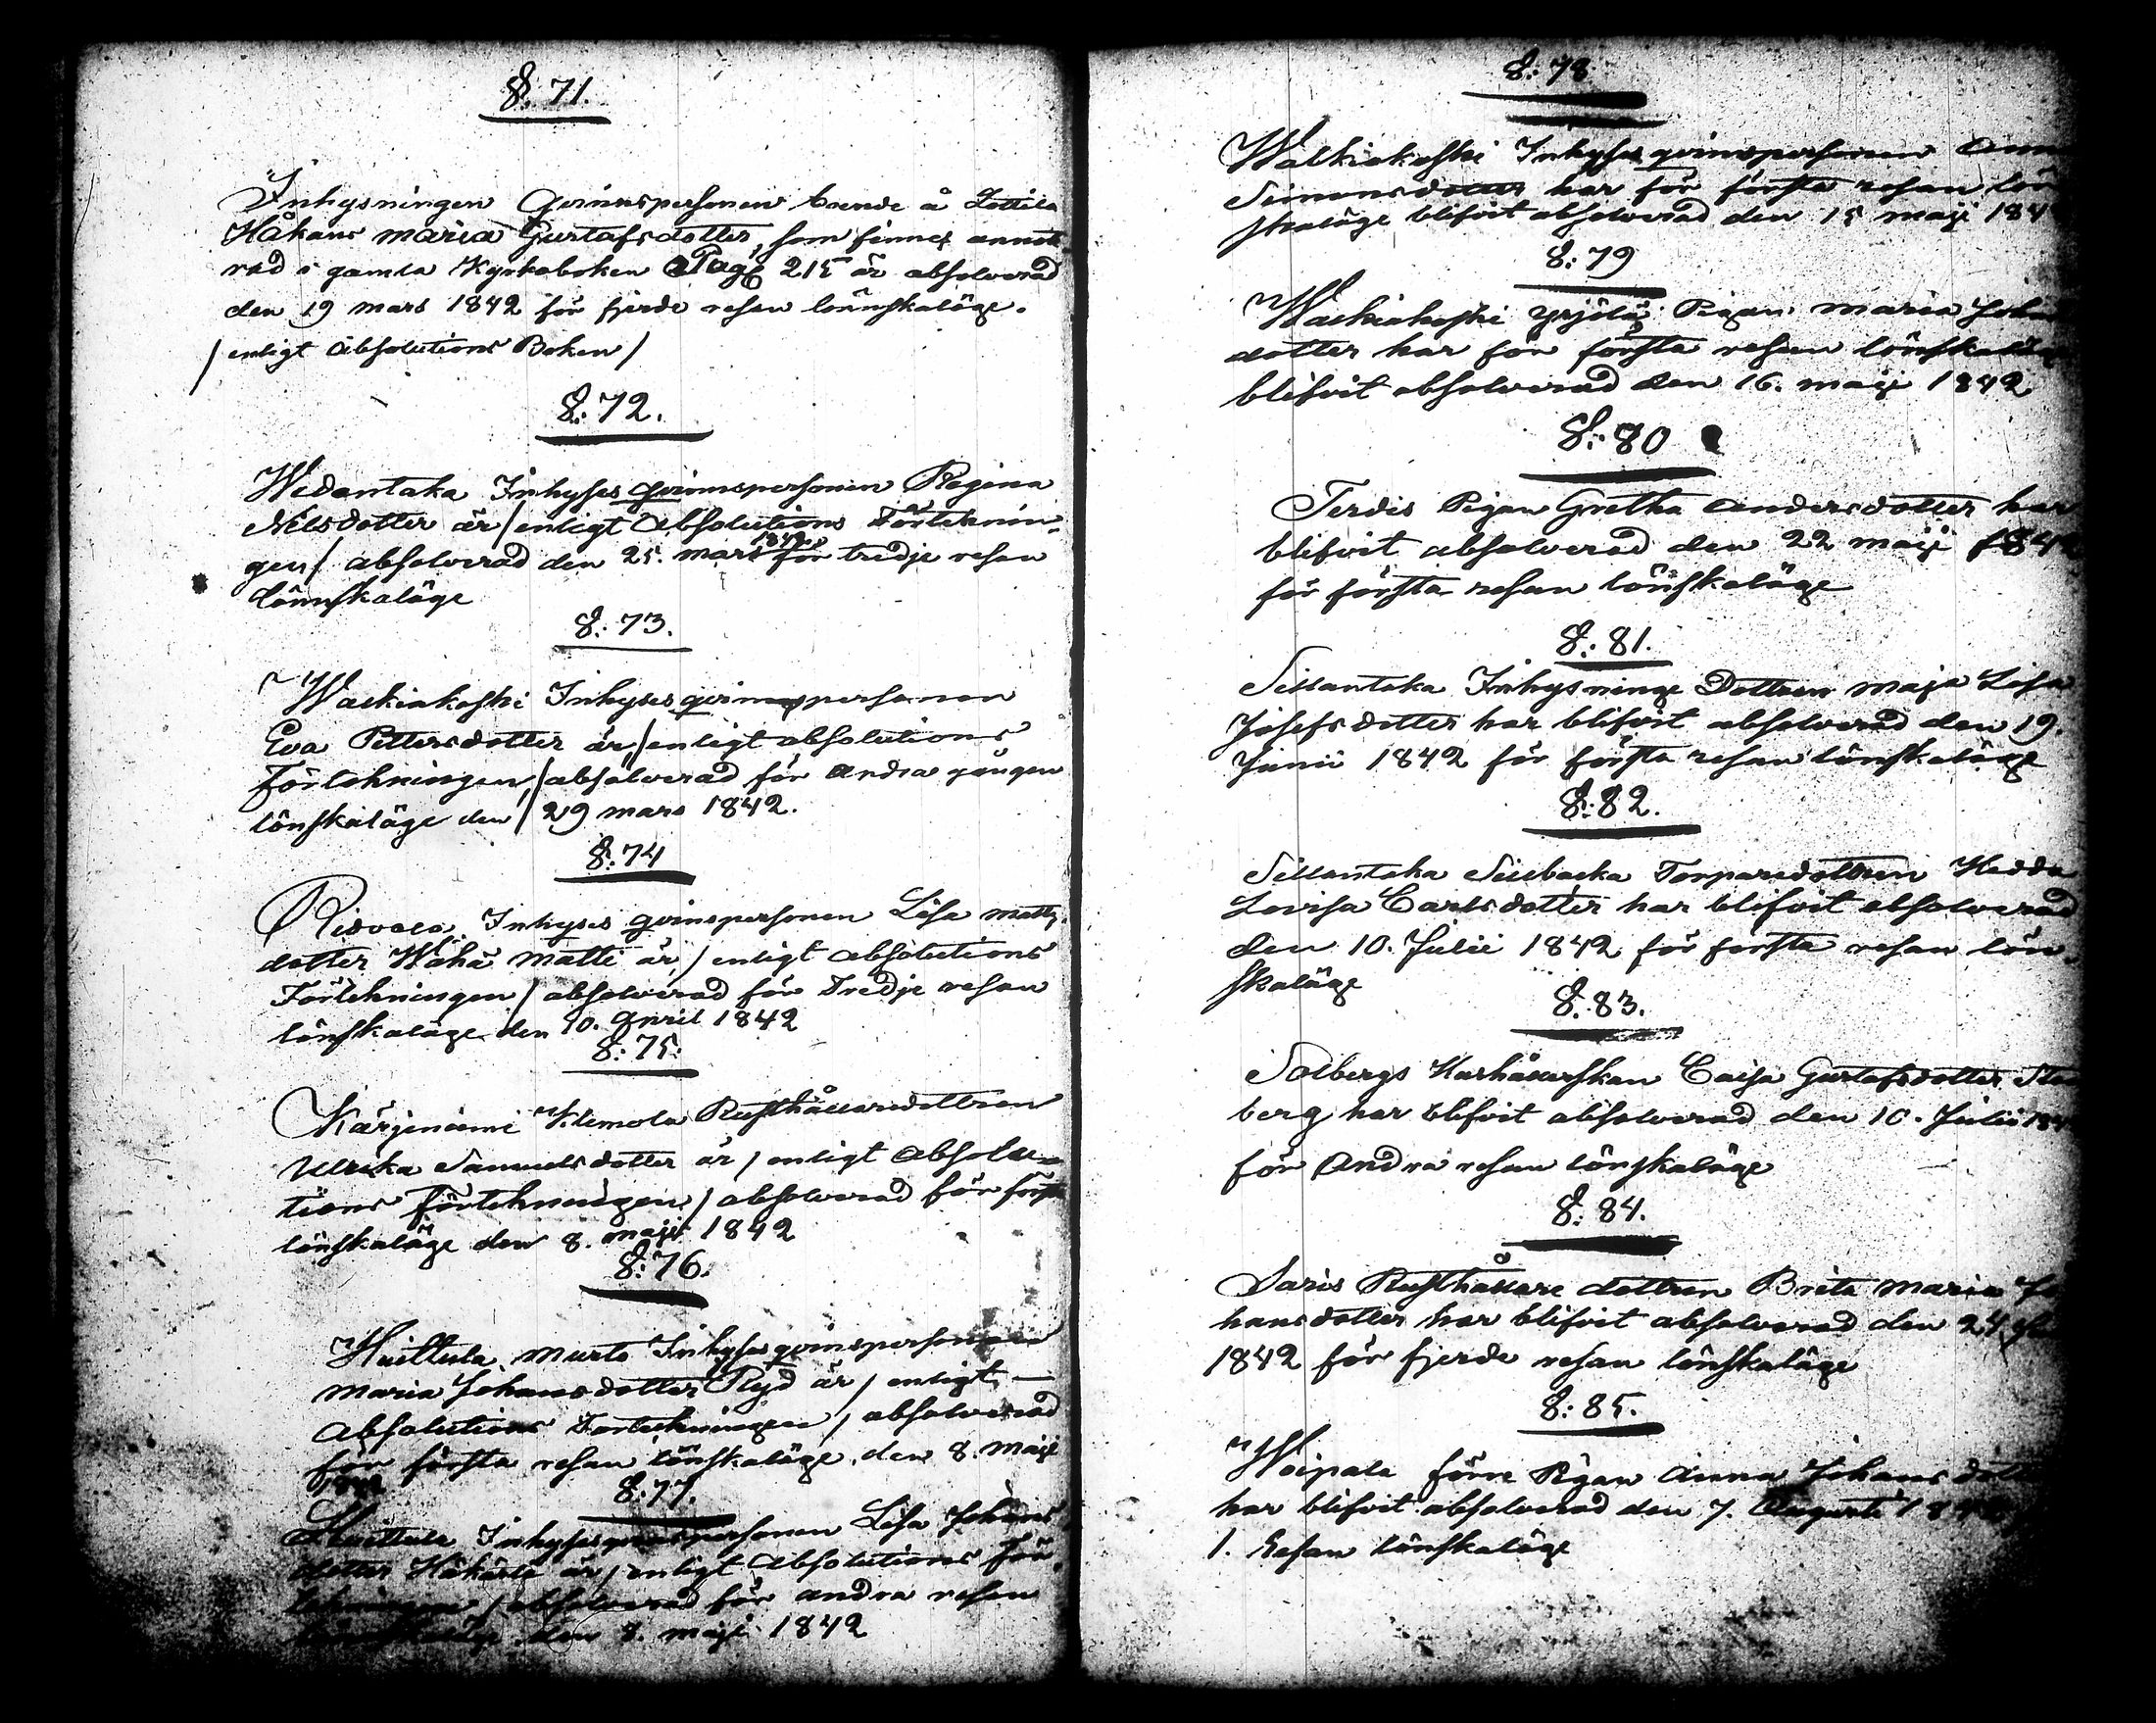 §: 71.
Inhysningen Qvinnspersonen boende å Lottila
Håkans Maria Gustafsdotter, som finnes annot
rad i gamla Kyrkoboken Pag 215 är absolverad
den 19 Mars 1842 för fjerde resan lönnskaläge.
/enligt Absolutions Boken/
§: 72.
Wedentaka Inhyses qvinnspersonen Regina
Nilsdotter är /enligt Absolutions Förteknin-
gen/ absolverad den 25. Mars 1842 för tredje resan
lönnskaläge
§: 73.
Walkiakoski Inhyses qvinspersonen
Eva Pettersdotter är /enligt absolutions
Förtekningen,/ absolverad för Andra gången
lönskaläge den 29 Mars 1842.
§: 74
Ridvala Inhyses qvinspersonen Lisa Matts
dotter Wähä Matti är / enligt Absolutions
Förtekningen / absolverad för Tredje resan
lönskaläge den 10. April 1842
§: 75.
Kärjeniemi Klemola Rusthållaredottren
Ulrika Samuelsdotter är / enligt Absolu-
tions Förtekningen / absolverad för första
lönskaläge den 8. Maji 1842
§: 76.
Huittula Murto Inhyses qvinspersonen
Maria Johansdotter Ryd är / enligt
Absolutions Förtekningen / absolverad
för första resan lönskaläge den 8. Maji
1842
§: 77.
Huittula Inhyses qvinspersonen Lisa Johans
dotter Håkala är / enligt Absolutions För-
tekningen / absolverad för andra resan
lönskaläge den 8. Maji 1842
§: 78
Walkiakoski Inhyses qvinnspersonen Anna
Simonsdotter har för första resan lön
skaläge blifvit absolverad den 15 Maji 1842
§: 79
Walkiakoski Yrjölä Pigan Maria Johans
dotter har för första resan lönskaläge
blifvit absolverad den 16. Maji 1842
§: 80
Terdis Pigan Gretha Andersdotter har
blifvit absolverad den 22 Maji 1842
för första resan lönskaläge
§: 81.
Sillantaka Inhysninge Dottren Maja Lisa
Josefsdotter har blifvit absolverad den 19.
Junii 1842 för första resan lönskaläge
§: 82.
Sillantaka Sillbacka Torparedottren Hedda
Lovisa Carlsdotter har blifvit absolverad
den 10. Julii 1842 för första resan lön-
skaläge
§: 83.
Solbergs Hushållerskan Caisa Gustafsdotter
berg har blifvit absolverad den 10. Julii 184
för Andra resan lönskaläge
§: 84.
Saris Rusthållare dottren Brita Maria Jo
hansdotter har blifvit absolverad den 24
1842 för fjerde resan lönskaläge
§: 85.
Woipala förre Pigan Anna Johansdotter
har blifvit absolverad den 7. Augusti 184
1. Resan lönskaläge